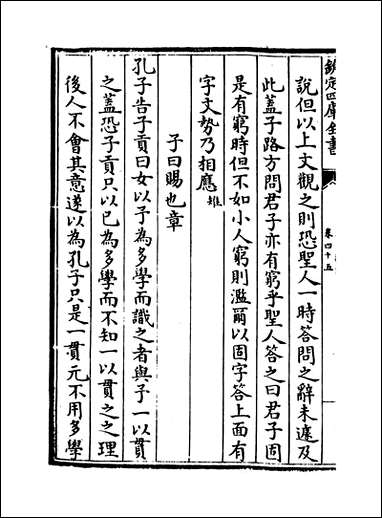 欽定四庫全書
卷四十五
說但以上文觀之則恐聖人一時答問之辭未遽及
此蓋子路方問君子亦有窮乎聖人答之曰君子固
是有窮時但不如小人窮則濫爾以固字答上面有
字文勢乃相應雉
子曰賜也章
孔子告子貢曰女以予為多學而識之者與予一以貫
之蓋恐子貢只以己為多學而不知一以貫之之理
後人不會其意遂以為孔子只是一貫元不用多學